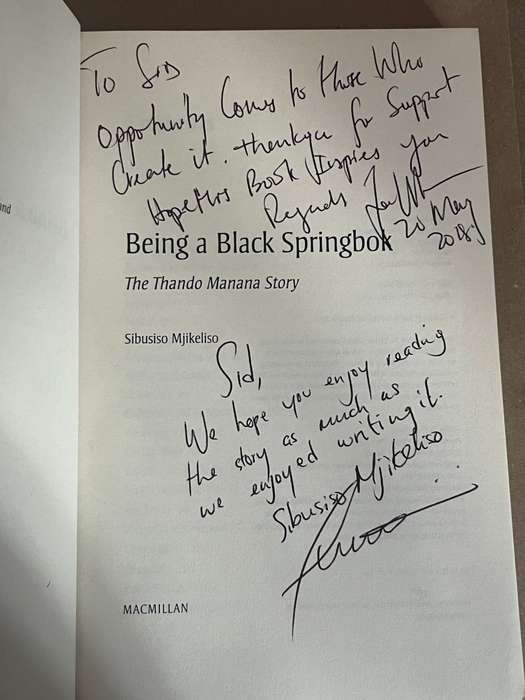 To Sid
Opportunity Comes to those Who
Create it. thankyou for Support
Hope this Book Inspires you
Regards
20 May
Being a Black Springbok
The Thando Manana Story
Sibusiso Mjikeliso
Sid,
We hope you enjoy reading
the story as much as
we enjoyed writing it.
Sibusiso Mjikeliso
MACMILLAN